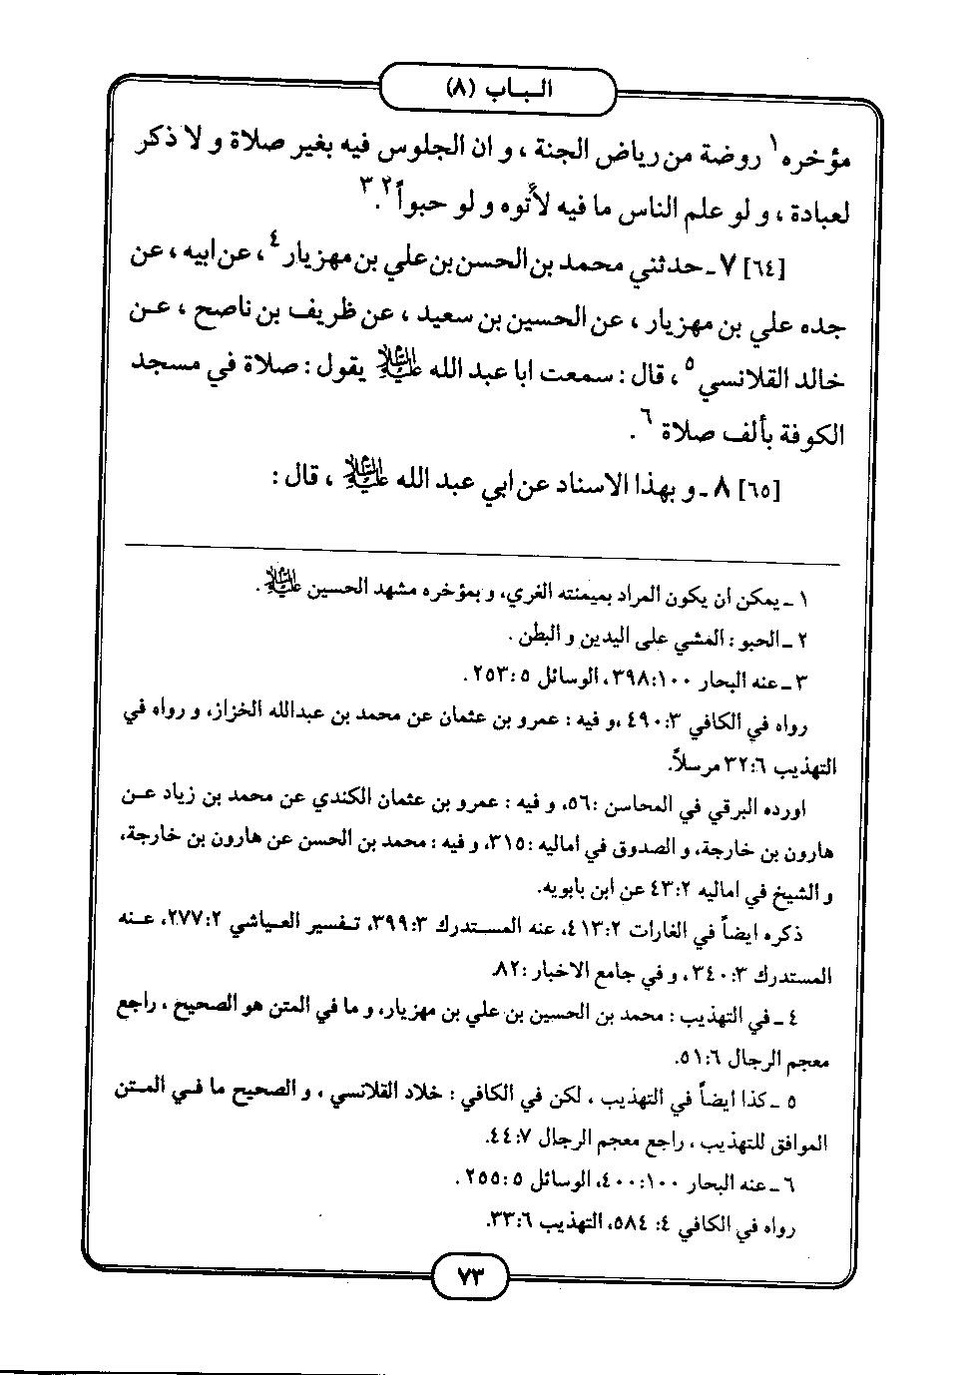 الـبـاب (٨)
مؤخره١ روضة من رياض الجنة ، و ان الجلوس فيه بغير صلاة و لا ذكر
لعبادة ، و لو علم الناس ما فيه لأتوه و لو حبواً٢.٣
[٦٤] ٧ ـ حدثني محمد بن الحسن بن علي بن مهزيار٤ ، عن ابيه ، عن
جده علي بن مهزيار ، عن الحسين بن سعيد ، عن ظريف بن ناصح ، عـن
خالد القلانسي٥ ، قال : سمعت ابا عبد الله عليه السلام يقول : صلاة في مسجد
الكوفة بألف صلاة٦ .
[٦٥] ٨ ـ و بهذا الاسناد عن ابي عبد الله عليه السلام ، قال :
١ ـ يمكن ان يكون المراد بميمنته الغري، و بمؤخره مشهد الحسين عليه السلام .
٢ ـ الحبو : المشي على اليدين و البطن .
٣ ـ عنه البحار ١٠٠:٣٩٨، الوسائل ٥ :٢٥٣ .
رواه في الكافي ٣: ٤٩٠ ،و فيه : عمرو بن عثمان عن محمد بن عبدالله الخزاز، و رواه في
التهذيب ٦:٣٢ مرسلاً.
اورده البرقي في المحاسن :٥٦، و فيه : عمرو بن عثمان الكندي عن محمد بن زياد عـن
هارون بن خارجة، و الصدوق في اماليه :٣١٥، و فيه : محمد بن الحسن عن هارون بن خارجة،
و الشيخ في اماليه ٢:٤٣ عن ابن بابويه.
ذكره ايضاً في الغارات ٢:٤١٣، عنه المسـتدرك ٣:٣٩٩، تـفسير العـياشي ٢:٢٧٧، عـنه
المستدرك ٣:٣٤٠ ، و في جامع الاخبار :٨٢.
٤ ـ في التهذيب : محمد بن الحسين بن علي بن مهزيار، و ما في المتن هو الصحيح ، راجع
معجم الرجال ٦:٥١.
٥ ـ كذا ايضاً في التهذيب ، لكن في الكافي : خلاد القلانسي ، و الصحيح ما فـي المـتن
الموافق للتهذيب ، راجع معجم الرجال ٧:٤٤.
٦ ـ عنه البحار ١٠٠:٤٠٠، الوسائل ٥ :٢٥٥ .
رواه في الكافي ٤: ٥٨٤، التهذيب ٦:٣٣.
٧٣